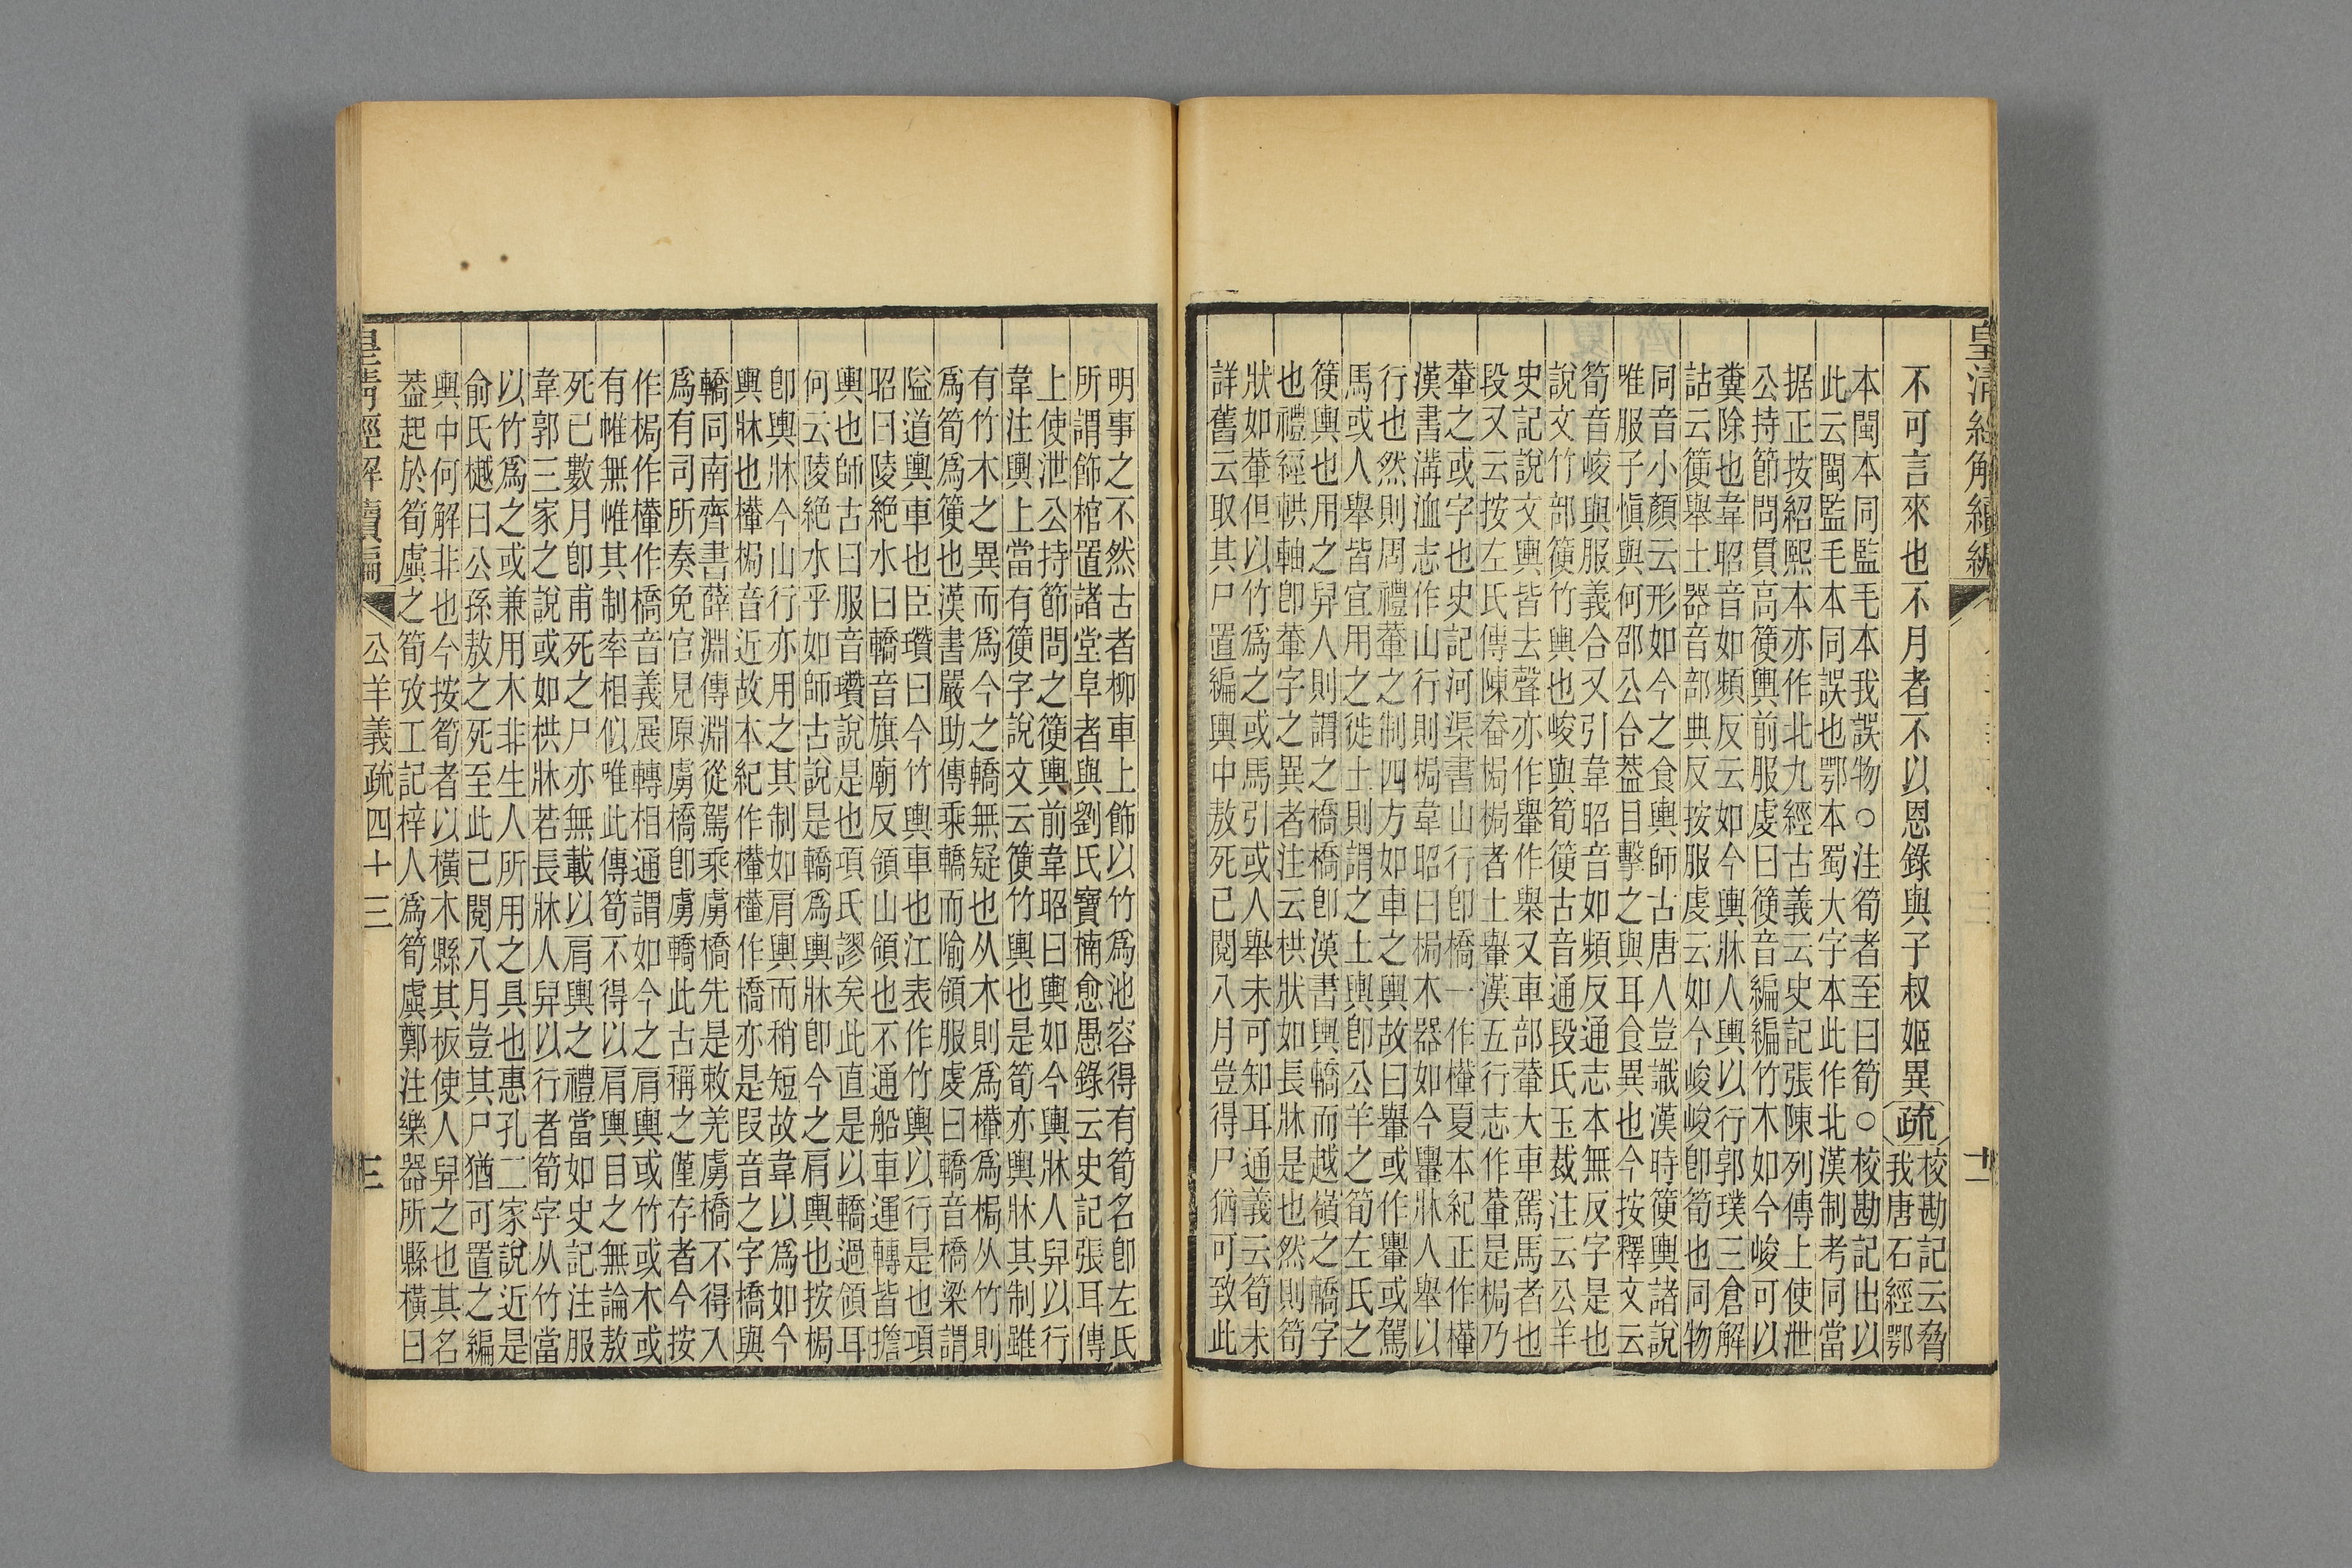 皇清經解續編
不可言來也不月者不以恩錄與子叔姬異疏校勘記云脅
我唐石經鄂
本閩本同監毛本我誤物○注筍者至曰筍○校勘記出以
此云閩監毛本同誤也鄂本蜀大字本此作北漢制考同當
据正按紹熙本亦作北九經古義云史記張陳列傳上使泄
公持節問貫高箯輿前服虔曰箯音編編竹木如今峻可以
糞除也韋昭音如頻反云如今輿牀人輿以行郭璞三倉解
詁云箯轝土器音部典反按服虔云如今峻峻卽筍也同物
同音小顏云形如今之食輿師古唐人豈識漢時箯輿諸說
唯服子愼與何邵公合葢目擊之與耳食異也今按釋文云
筍音峻與服義合又引韋昭音如頻反通志本無反字是也
說文竹部箯竹輿也峻與筍箯古音通段氏玉裁注云公羊
史記說文輿皆去聲亦作轝作舉又車部輂大車駕馬者也
段又云按左氏傳陳畚挶挶者土轝漢五行志作輂是挶乃
輂之或字也史記河渠書山行卽橋一作檋夏本紀正作檋
漢書溝洫志作山行則梮韋昭曰梮木器如今轝牀人舉以
行也然則周禮輂之制四方如車之輿故曰轝或作轝或駕
馬或人舉皆宜用之徙土則謂之土輿卽公羊之筍左氏之
箯輿也用之舁人則謂之橋橋卽漢書輿轎而越嶺之轎字
也禮經軼軸卽輂字之異者注云栱狀如長牀是也然則筍
狀如輂但以竹爲之或馬引或人舉未可知耳通義云筍未
詳舊云取其尸置編輿中敖死已閱八月豈得尸猶可致此
明事之不然古者柳車上飾以竹爲池容得有筍名卽左氏
所謂飾棺置諸堂阜者與劉氏寶楠愈愚錄云史記張耳傳
上使泄公持節問之箯輿前韋昭曰輿如今輿牀人舁以行
韋注輿上當有箯字說文云箯竹輿也是筍亦輿牀其制雖
有竹木之異而爲今之轎無疑也从木則爲檋爲梮从竹則
爲筍爲箯也漢書嚴助傳乘轎而隃領服虔曰轎音橋梁謂
隘道輿車也臣瓚曰今竹輿車也江表作竹輿以行是也項
昭曰陵絕水曰轎音旗廟反領山領也不通船車運轉皆擔
輿也師古曰服音瓚說是也項氏謬矣此直是以轎過領耳
何云陵絕水乎如師古說是轎爲輿牀卽今之肩輿也按梮
卽輿牀今山行亦用之其制如肩輿而稍短故韋以爲如今
輿牀也檋梮音近故本紀作檋檋作橋亦是叚音之字橋與
轎同南齊書薛淵傳淵從駕乘虜橋先是敕羌虜橋不得入
爲有司所奏免官見原虜橋卽虜轎此古稱之僅存者今按
作梮作檋作橋音義展轉相通謂如今之肩輿或竹或木或
有帷無帷其制率相似唯此傳筍不得以肩輿目之無論敖
死已數月卽甫死之尸亦無載以肩輿之禮當如史記注服
韋郭三家之說或如栱牀若長牀人舁以行者筍字从竹當
以竹爲之或兼用木非生人所用之具也惠孔二家說近是
俞氏樾曰公孫敖之死至此已閱八月豈其尸猶可置之編
輿中何解非也今按筍者以橫木縣其板使人舁之也其名
葢起於筍虡之筍攷工記梓人爲筍虡鄭注樂器所縣橫曰
皇清經解續編 公羊義疏四十三